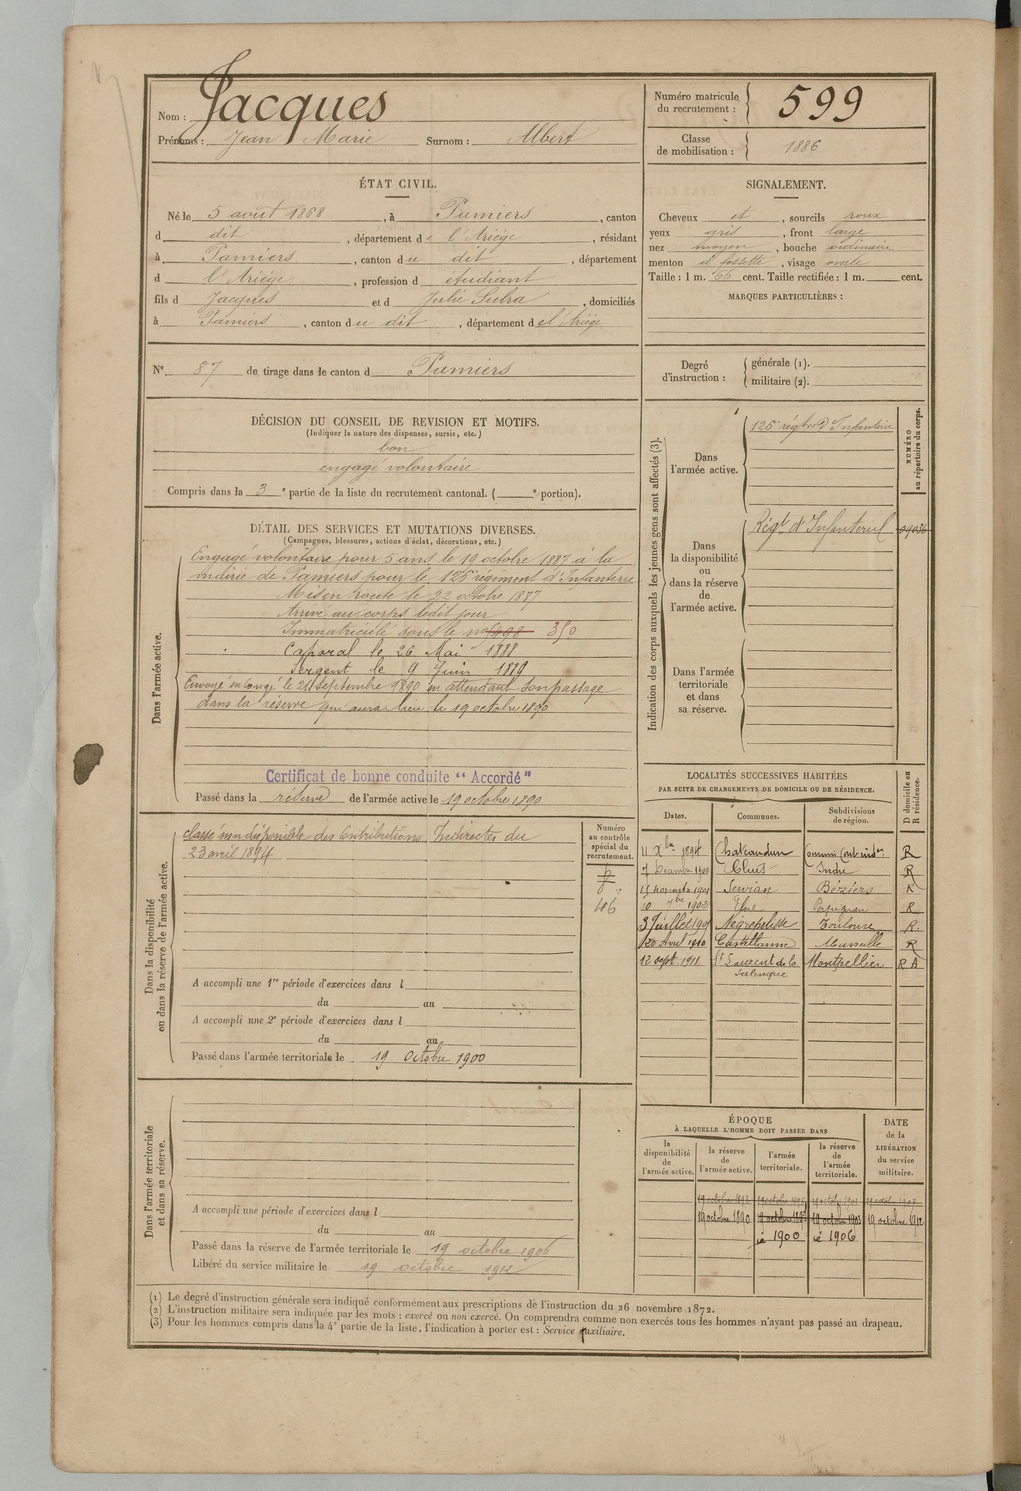 Nom : Jacques
Prénoms : Jean Marie Surnom : Albert
Numéro matricule du recrutement : 599
Classe de mobilisation : 1886
ÉTAT CIVIL.
Né le 5 août 1868, à Pamiers, canton
d dit, département de l'Ariège, résidant
à Pamiers, canton du dit, département
d l'Ariège, profession d étudiant
fils d Jacques et d Julie Subra, domiciliés
à Pamiers, canton du dit, département de l'Ariège
N° 87 de tirage dans le canton d Pamiers
SIGNALEMENT.
Cheveux et, sourcils roux
yeux gris, front large
nez moyen, bouche ordinaire
menton à fossette, visage ovale
Taille : 1 m. 66 cent. Taille rectifiée : 1 m. cent.
MARQUES PARTICULIÈRES :
Degré d'instruction : générale (1). militaire (2).
DÉCISION DU CONSEIL DE REVISION ET MOTIFS.
(Indiquer la nature des dispenses, sursis, etc.)
bon
engagé volontaire
Compris dans la 3e partie de la liste du recrutement cantonal. ( e portion).
DÉTAIL DES SERVICES ET MUTATIONS DIVERSES.
(Campagnes, blessures, actions d'éclat, décorations, etc.)
Dans l'armée active.
Engagé volontaire pour 5 ans, le 19 octobre 1887 à la
mairie de Pamiers pour le 126 régiment d'Infanterie
Mis en route le 22 octobre 1887
Arrivé au corps ledit jour
Immatriculé sous le no 350
Caporal le 26 Mai 1888
Sergent le 9 Juin 1889
Envoyé en congé le 21 septembre 1890 en attendant son passage
dans la réserve qui aura lieu le 19 octobre 1890
Certificat de bonne conduite "Accordé"
Passé dans la réserve de l'armée active le 19 octobre 1890
Indication des corps auxquels les jeunes gens sont affectés (3).
NUMÉRO au répertoire du corps.
Dans l'armée active.
126e régt d'Infanterie
Dans la disponibilité ou dans la réserve de l'armée active.
Régt d'Infanterie
Dans l'armée territoriale et dans sa réserve.
Dans la disponibilité ou dans la réserve de l'armée active.
classé non disponible des Contributions Indirectes du
23 avril 1894
Numéro au contrôle spécial du recrutement.
406
A accompli une 1re période d'exercices dans l
du au
A accompli une 2e période d'exercices dans l
du au
Passé dans l'armée territoriale le 19 octobre 1900
LOCALITÉS SUCCESSIVES HABITÉES
PAR SUITE DE CHANGEMENTS DE DOMICILE OU DE RÉSIDENCE.
Dates. Communes. Subdivisions de région. D domicile ou R résidence.
11 Xbre 1894 Chateaudun R
7 Décembre 1900 Cluis Indre R
15 novembre 1901 Servian Béziers R
10 7bre 1902 Elne Perpignan R
3 Juillet 1907 Nègrepelisse Toulouse R
20 Avril 1910 Castellanne Marseille R
12 sept. 1911 St Laurent de la Salanque Montpellier R A
Dans l'armée territoriale et dans sa réserve.
A accompli une période d'exercices dans l
du au
Passé dans la réserve de l'armée territoriale le 19 octobre 1906
Libéré du service militaire le 19 octobre 1912
ÉPOQUE
À LAQUELLE L'HOMME DOIT PASSER DANS
la disponibilité de l'armée active. la réserve de l'armée active. l'armée territoriale. la réserve de l'armée territoriale. DATE de la LIBÉRATION du service militaire.
19 octobre 1890 19 octobre 1912
1900 1906
(1) Le degré d'instruction générale sera indiqué conformément aux prescriptions de l'instruction du 26 novembre 1872.
(2) L'instruction militaire sera indiquée par les mots : exercé ou non exercé. On comprendra comme non exercés tous les hommes n'ayant pas passé au drapeau.
(3) Pour les hommes compris dans la 4e partie de la liste, l'indication à porter est : Service auxiliaire.